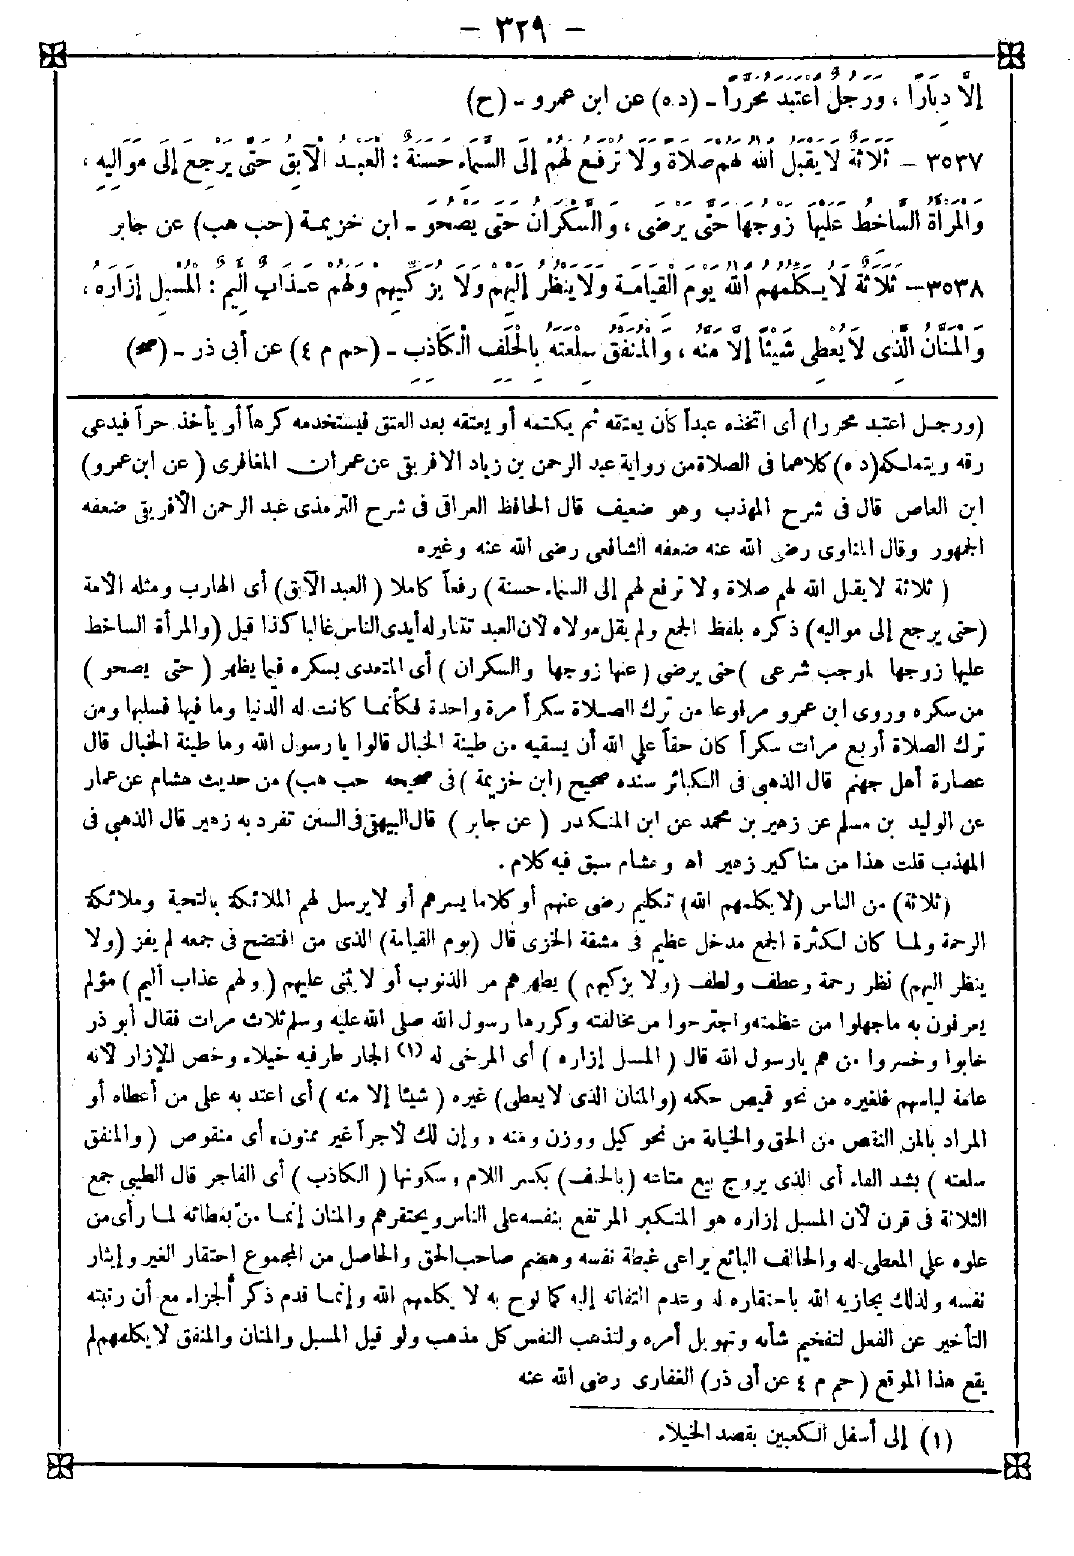 - ٣٢٩ -
إِلَّا دِبَارًا ، وَرَجُلٌ اعْتَبَدَ مُحَرَّرًا - (د ه) عن ابن عمرو - (ح)
٣٥٣٧ - ثَلَاثَةٌ لَا يَقْبَلُ اللهُ لَهُمْ صَلَاةً وَلَا تُرْفَعُ لَهُمْ إِلَى السَّمَاءِ حَسَنَةٌ : الْعَبْدُ الْآبِقُ حَتَّى يَرْجِعَ إِلَى مَوَالِيهِ ،
وَالْمَرْأَةُ السَّاخِطُ عَلَيْهَا زَوْجُهَا حَتَّى يَرْضَى ، وَالسَّكْرَانُ حَتَّى يَصْحُوَ - ابن خزيمة (حب هب) عن جابر
٣٥٣٨ - ثَلَاثَةٌ لَا يُكَلِّمُهُمُ اللهُ يَوْمَ الْقِيَامَةِ وَلَا يَنْظُرُ إِلَيْهِمْ وَلَا يُزَكِّيهِمْ وَلَهُمْ عَذَابٌ أَلِيمٌ : الْمُسْبِلُ إِزَارَهُ ،
وَالْمَنَّانُ الَّذِى لَا يُعْطِى شَيْئًا إِلَّا مَنَّهُ ، وَالْمُنَفِّقُ سِلْعَتَهُ بِالْحَلِفِ الْكَاذِبِ - (حم م ٤) عن أبى ذر - (صح)
(ورجل اعتبد محررا) أى اتخذه عبدا كأن يعتقه ثم يكتمه أو يعتقه بعد العتق فيستخدمه كرهاً أو يأخذ حراً فيدعى
رقه ويتملكه (د ه) كلاهما فى الصلاة من رواية عبد الرحمن بن زياد الافريقى عن عمران المغافرى (عن ابن عمرو)
ابن العاص قال فى شرح المهذب وهو ضعيف قال الحافظ العراقى فى شرح الترمذى عبد الرحمن الأفريقى ضعفه
الجمهور وقال المناوى رضى الله عنه ضعفه الشافعى رضى الله عنه وغيره
( ثلاثة لا يقبل الله لهم صلاة ولا ترفع لهم إلى السماء حسنة ) رفعاً كاملا ( العبد الآبق) أى الهارب ومثله الأمة
(حتى يرجع إلى مواليه) ذكره بلفظ الجمع ولم يقل مولاه لأن العبد تتناوله أيدى الناس غالبا كذا قيل (والمرأة الساخط
عليها زوجها لموجب شرعى )حتى يرضى (عنها زوجها والسكران ) أى المتعدى بسكره فيما يظهر ( حتى يصحو )
من سكره وروى ابن عمرو مرفوعا من ترك الصلاة سكراً مرة واحدة فكأنما كانت له الدنيا وما فيها فسلبها ومن
ترك الصلاة أربع مرات سكراً كان حقاً على الله أن يسقيه من طينة الخبال قالوا يا رسول الله وما طينة الخبال قال
عصارة أهل جهنم قال الذهبى فى الكبائر سنده صحيح (ابن خزيمة ) فى صحيحه حب هب) من حديث هشام عن عمار
عن الوليد بن مسلم عن زهير بن محمد عن ابن المنكدر ( عن جابر ) قال البيهقى فى السنن تفرد به زهير قال الذهبى فى
المهذب قلت هذا من مناكير زهير اه وهشام سبق فيه كلام .
(ثلاثة) من الناس (لا يكلمهم الله) تكليم رضى عنهم أو كلاما يسرهم أو لا يرسل لهم الملائكة بالتحية وملائكة
الرحمة ولما كان لكثرة الجمع مدخل عظيم فى مشقة الخزى قال (يوم القيامة) الذى من افتضح فى جمعه لم يفز (ولا
ينظر اليهم) نظر رحمة وعطف ولطف (ولا يزكيهم ) يطهرهم من الذنوب أو لا يثنى عليهم ( ولهم عذاب أليم ) مؤلم
يعرفون به ما جهلوا من عظمته واجترحوا من مخالفته وكررها رسول الله صلى الله عليه وسلم ثلاث مرات فقال أبو ذر
خابوا وخسروا من هم يا رسول الله قال ( المسبل إزاره ) أى المرخى له (١) الجار طرفيه خيلاء وخص الإزار لأنه
عامة لباسهم فلغيره من نحو قميص حكمه (والمنان الذى لا يعطى) غيره ( شيئا إلا منه ) أى اعتد به على من أعطاه أو
المراد بالمن النقص من الحق والخيانة من نحو كيل ووزن ومنه ، وإن لك لأجراً غير ممنون، أى منقوص (والمنفق
سلعته ) بشد الفاء أى الذى يروج بيع متاعه (بالحلف) بكسر اللام وسكونها ( الكاذب ) أى الفاجر قال الطيبى جمع
الثلاثة فى قرن لأن المسبل إزاره هو المتكبر المرتفع بنفسه على الناس ويحتقرهم والمنان إنما منّ بعطائه لما رأى من
علوه على المعطى له والحالف البائع يراعى غبطة نفسه وهضم صاحب الحق والحاصل من المجموع احتقار الغير وإيثار
نفسه ولذلك يجازيه الله باحتقاره له وعدم التفاته إليه كما لوح به لا يكلمهم الله وإنما قدم ذكر الجزاء مع أن رتبته
التأخير عن الفعل لتفخيم شأنه وتهويل أمره ولتذهب النفس كل مذهب ولو قيل المسبل والمنان والمنفق لا يكلمهم لم
يقع هذا الموقع ( حم م ٤ عن أبى ذر) الغفارى رضى الله عنه
(١) إلى أسفل الكعبين بقصد الخيلاء.